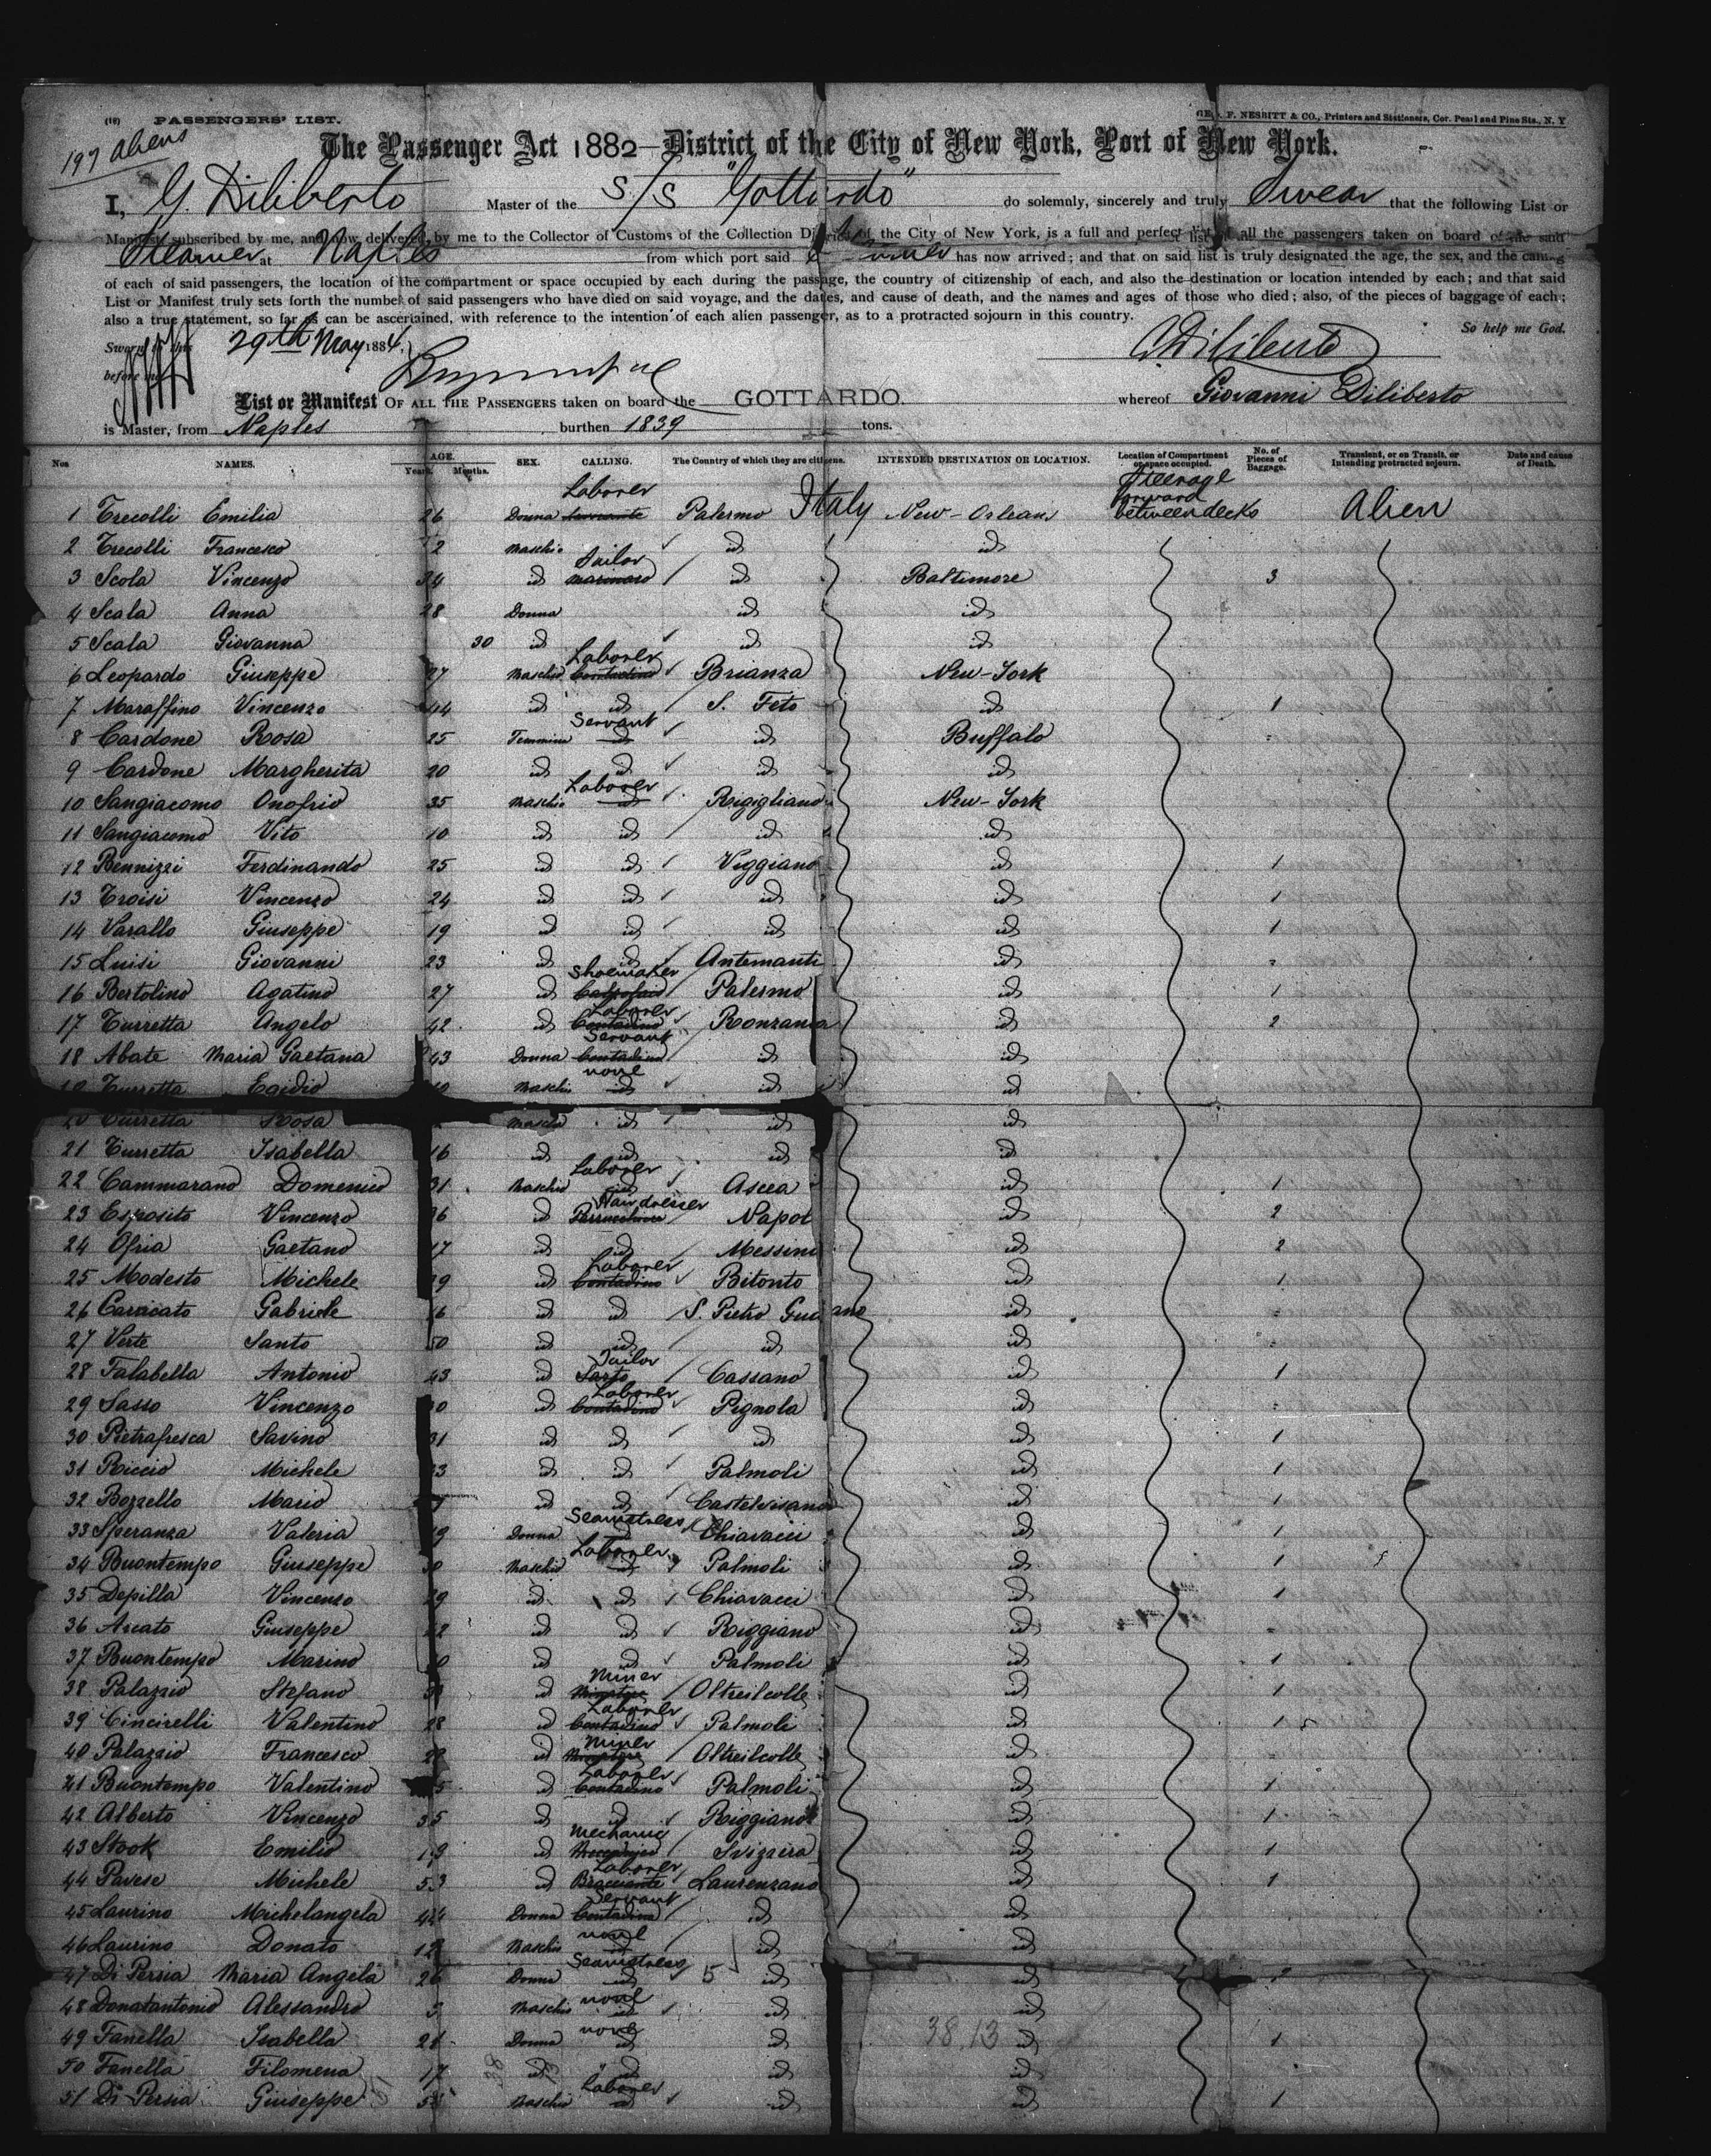 (18) PASSENGERS' LIST.
GEO. F. NESBITT & CO., Printers and Stationers, Cor. Pearl and Pine Sts., N. Y
197 aliens
The Passenger Act 1882—District of the City of New York, Port of New York.
I, G. Diliberto Master of the S/S "Gottardo" do solemnly, sincerely and truly Swear that the following List or
Manifest, subscribed by me, and now delivered by me to the Collector of Customs of the Collection District of the City of New York, is a full and perfect list of all the passengers taken on board of the said
Steamer at Naples from which port said Steamer has now arrived; and that on said list is truly designated the age, the sex, and the calling
of each of said passengers, the location of the compartment or space occupied by each during the passage, the country of citizenship of each, and also the destination or location intended by each; and that said
List or Manifest truly sets forth the number of said passengers who have died on said voyage, and the dates, and cause of death, and the names and ages of those who died; also, of the pieces of baggage of each;
also a true statement, so far as can be ascertained, with reference to the intention of each alien passenger, as to a protracted sojourn in this country.
So help me God.
Sworn to this 29th May 1884
before me
Diliberto
List or Manifest OF ALL THE PASSENGERS taken on board the GOTTARDO. whereof Giovanni Diliberto
is Master, from Naples burthen 1839 tons.
Nos NAMES. AGE. Years. Months. SEX. CALLING. The Country of which they are citizens. INTENDED DESTINATION OR LOCATION. Location of Compartment or space occupied. No. of Pieces of Baggage. Transient, or on Transit, or Intending protracted sojourn. Date and cause of Death.
1 Trecolli Emilia 26 Donna Laborer Palermo Italy New-Orleans Steerage forward between decks Alien
2 Trecolli Francesco 2 Maschio id id
3 Scola Vincenzo 34 id Tailor marinaro id Baltimore 3
4 Scala Anna 28 Donna id id
5 Scala Giovanna 30 id id id
6 Leopardo Giuseppe 27 Maschio Laborer Contadino Brianza New-York
7 Maraffino Vincenzo 44 id id S. Feto id 1
8 Cardone Rosa 25 Femmina Servant id id Buffalo
9 Cardone Margherita 20 id id id id
10 Sangiacomo Onofrio 35 Maschio Laborer id Rigigliano New-York
11 Sangiacomo Vito 10 id id id id
12 Bennizzi Ferdinando 25 id id Viggiano id 1
13 Troisi Vincenzo 24 id id id id 1
14 Varallo Giuseppe 19 id id id id 1
15 Luisi Giovanni 23 id id Antemanti id
16 Bertolino Agatino 27 id Shoemaker Palermo id 1
17 Turretta Angelo 42 id Laborer Contadino Ronzania id 2
18 Abate Maria Gaetana 43 Donna Servant Contadina id id
19 Turretta Egidio Maschio none id id id
20 Turretta Rosa Maschio id id id
21 Turretta Isabella 16 id id id id
22 Cammarano Domenico 31 Maschio Laborer id Ascea id 1
23 Esposito Vincenzo 36 id Hairdresser Napol id 2
24 Ofria Gaetano 17 id id Messina id 2
25 Modesto Michele 39 id Laborer Contadino Bitonto id 1
26 Caracato Gabriele id id S. Pietro id
27 Verte Santo 50 id id id id
28 Falabella Antonio 43 id Tailor Sarto Cassano id 1
29 Sasso Vincenzo id Laborer Contadino Pignola id
30 Pietrafresca Savino 31 id id id id 1
31 Riccio Michele id id Palmoli id 1
32 Bozzello Mario id id id 1
33 Speranza Valeria Donna Seamstress id Chiavacci id 1
34 Buontempo Giuseppe Maschio Laborer id Palmoli id 1
35 Depilla Vincenzo id id Chiavacci id 1
36 Arcato Giuseppe id id Riggiano id
37 Buontempo Marino id id Palmoli id 1
38 Palazzio Stefano id Miner Minatore Oltreilcolle id 1
39 Cincirelli Valentino 28 id Laborer Contadino Palmoli id 1
40 Palazzio Francesco id Miner Minatore Oltreilcolle id
41 Buontempo Valentino id Laborer Contadino Palmoli id 1
42 Alberto Vincenzo 35 id id Riggiano id 1
43 Stook Emilio 19 id Mechanic Svizzira id 1
44 Pavese Michele 53 id Laborer Bracciante Laurenzano id 1
45 Laurino Michelangela 44 Donna Servant Contadina id id
46 Laurino Donato 12 Maschio none id id id
47 Di Persia Maria Angela 26 Donna Seamstress id 5 id id
48 Donatantonio Alessandro 3 Maschio none id id id
49 Fanella Isabella 21 Donna none id id 38.13 id 1
50 Fanella Filomena 17 id id id id
51 Di Persia Giuseppe Maschio Laborer id id id 1